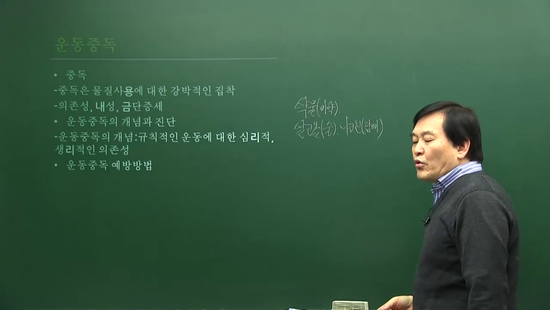 운동중독
• 중독
-중독은 물질사용에 대한 강박적인 집착
-의존성, 내성, 금단증세
• 운동중독의 개념과 진단
-운동중독의 개념:규칙적인 운동에 대한 심리적,
생리적인 의존성
• 운동중독 예방방법
약물(마약)
알코올(술), 니코틴(담배)